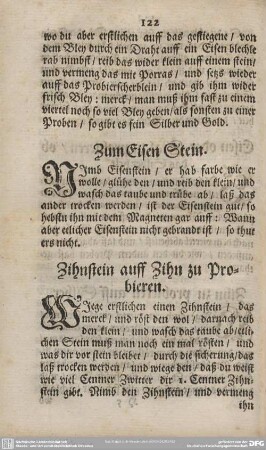 122
wo du aber erstlichen auff das gestiegene / von
dem Bley durch ein Draht auff ein Eisen blechle
rab nimbst / reib das wider klein auff einem stein /
und vermeng das mit Porras / und setzs wieder
auff das Probierscherblein / und gib ihm wider
frisch Bley: merck / man muß ihm fast zu einem
viertel noch so viel Bley geben / als sonsten zu einer
Proben / so gibt es sein Silber und Gold.
Zum Eisen Stein.
NJmb Eisenstein / er hab farbe wie er
wolle / glühe den / und reib den klein / und
wasch das taube und trübe ab / laß das
ander trocken werden / ist der Eisenstein gut / so
hebstu ihn mit dem Magneten gar auff: Wann
aber etlicher Eisenstein nicht gebrandt ist / so thut
ers nicht.
Zihnstein auff Zihn zu Pro-
bieren.
WJege erstlichen einen Zihnstein / das
merck / und röst den wol / darnach reib
den klein / und wasch das taube ab / etli-
chen Stein muß man noch ein mal rösten / und
was dir vor stein bleibet / durch die sicherung / das
laß trocken werden / und wiege den / daß du weist
wie viel Centner Zwitter dir 1. Centner Zihn-
stein gibt. Nimb den Zihnstein / und vermeng
ihn